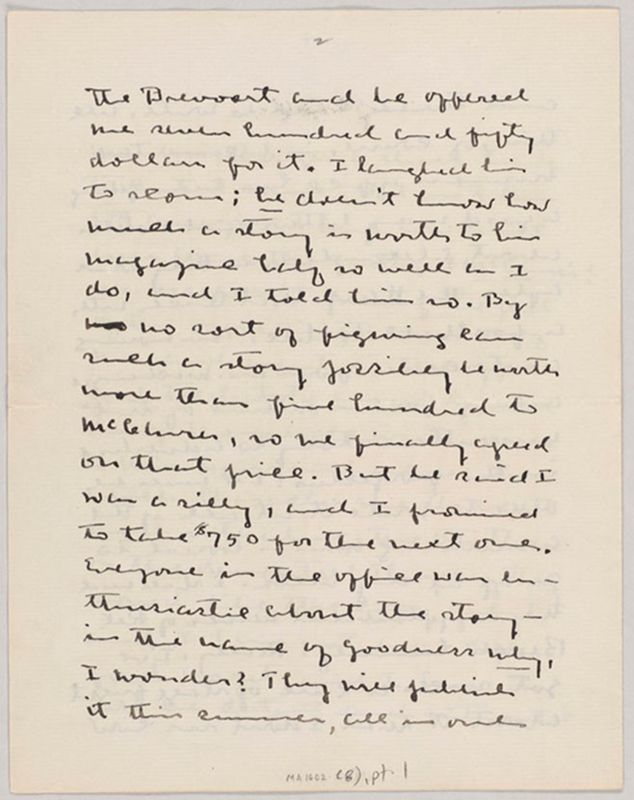 2
the Brevoort and he offered
me seven hundred and fifty
dollars for it. I laughed him
to scorn; he doesn't know how
much a story is worth to his
magazine half so well as I
do, and I told him so. By
no sort of figuring can
such a story possibly be worth
more than five hundred to
McClures, so we finally agreed
on that price. But he said I
was a silly, and I promised
to take $750 for the next one.
Everyone in the office was en-
thusiastic about the story —
in the name of goodness why,
I wonder? They will publish
it this summer, all in one
MA 1602 (8), pt. 1